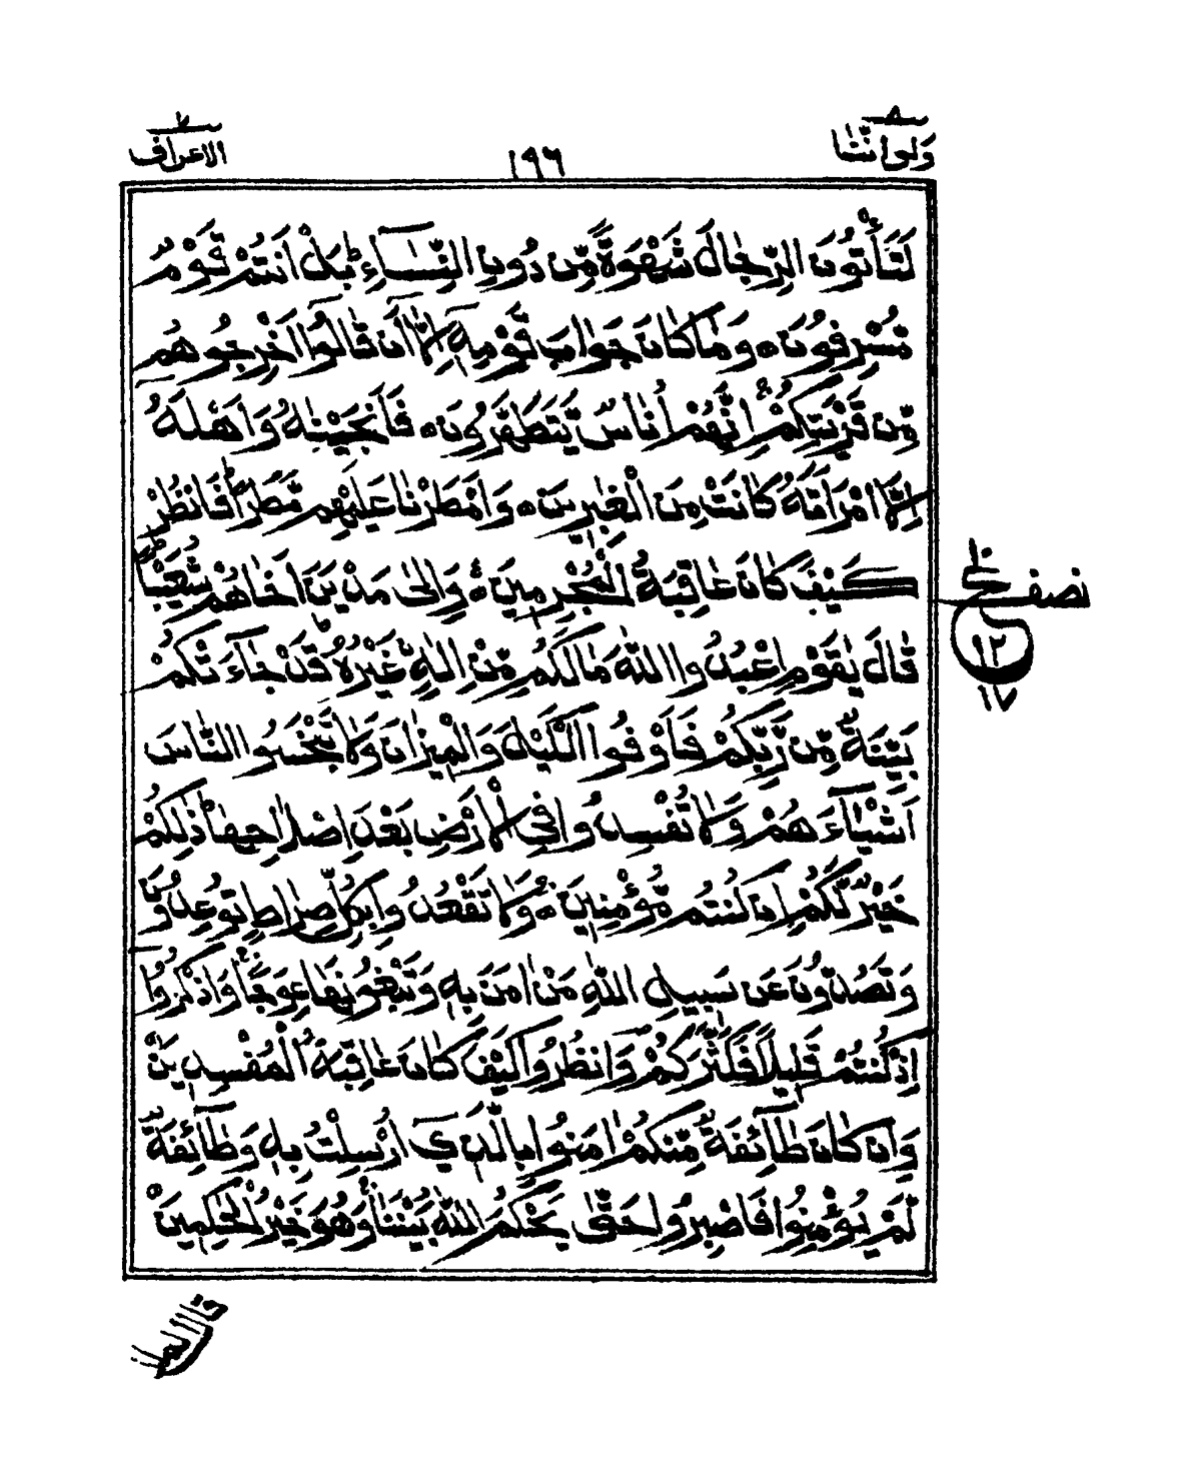 ولواننا ٨
١٩٦
الاعراف ٧
لَتَأْتُونَ الرِّجَالَ شَهْوَةً مِّنْ دُونِ النِّسَآءِ ؕ بَلْ اَنْتُمْ قَوْمٌ
مُّسْرِفُوْنَ ۝ وَمَا كَانَ جَوَابَ قَوْمِهٖٓ اِلَّآ اَنْ قَالُوْٓا اَخْرِجُوْهُمْ
مِّنْ قَرْيَتِكُمْ ۚ اِنَّهُمْ اُنَاسٌ يَّتَطَهَّرُوْنَ ۝ فَاَنْجَيْنٰهُ وَاَهْلَهٗٓ
اِلَّا امْرَاَتَهٗ كَانَتْ مِنَ الْغٰبِرِيْنَ ۝ وَاَمْطَرْنَا عَلَيْهِمْ مَّطَرًا ؕ فَانْظُرْ
كَيْفَ كَانَ عَاقِبَةُ الْمُجْرِمِيْنَ ۝ وَاِلٰى مَدْيَنَ اَخَاهُمْ شُعَيْبًا ؕ
قَالَ يٰقَوْمِ اعْبُدُوا اللّٰهَ مَا لَكُمْ مِّنْ اِلٰهٍ غَيْرُهٗ ؕ قَدْ جَآءَتْكُمْ
بَيِّنَةٌ مِّنْ رَّبِّكُمْ فَاَوْفُوا الْكَيْلَ وَالْمِيْزَانَ وَلَا تَبْخَسُوا النَّاسَ
اَشْيَآءَهُمْ وَلَا تُفْسِدُوْا فِى الْاَرْضِ بَعْدَ اِصْلَاحِهَا ؕ ذٰلِكُمْ
خَيْرٌ لَّكُمْ اِنْ كُنْتُمْ مُّؤْمِنِيْنَ ۝ وَلَا تَقْعُدُوْا بِكُلِّ صِرَاطٍ تُوْعِدُوْنَ
وَتَصُدُّوْنَ عَنْ سَبِيْلِ اللّٰهِ مَنْ اٰمَنَ بِهٖ وَتَبْغُوْنَهَا عِوَجًا ۚ وَاذْكُرُوْٓا
اِذْ كُنْتُمْ قَلِيْلًا فَكَثَّرَكُمْ ۪ وَانْظُرُوْا كَيْفَ كَانَ عَاقِبَةُ الْمُفْسِدِيْنَ
وَاِنْ كَانَ طَآئِفَةٌ مِّنْكُمْ اٰمَنُوْا بِالَّذِيْٓ اُرْسِلْتُ بِهٖ وَطَآئِفَةٌ
لَّمْ يُؤْمِنُوْا فَاصْبِرُوْا حَتّٰى يَحْكُمَ اللّٰهُ بَيْنَنَا ۚ وَهُوَ خَيْرُ الْحٰكِمِيْنَ
نصف
١٠
ع
١٢
١٧
قال الملا